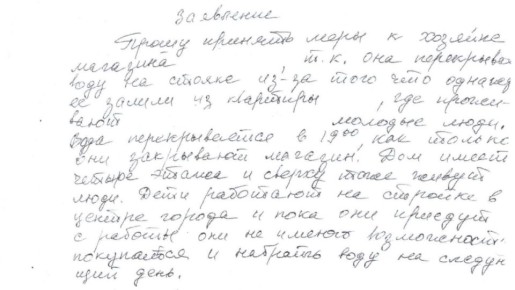 Заявление
Прошу принять меры к хозяйке
магазина , т.к. она перекрывает
воду на стояке из-за того что однажд
её залили из квартиры , где прожи-
вают молодые люди.
Вода перекрывается в 19 00, как только
они закрывают магазин. Дом имеет
четыре этажа и сверху тоже живут
люди. Дети работают на стройке в
центре города и пока они приедут
с работы они не имеют возможност
покупаться и набрать воду на следую
щий день.